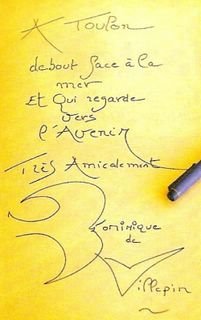 A Toulon
debout face à la
mer
Et Qui regarde
vers
l'Avenir
Très Amicalement
Dominique
de
Villepin